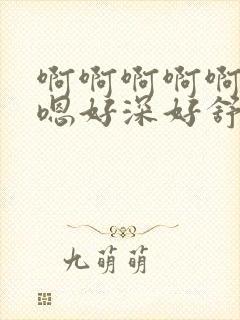 啊啊啊啊啊
嗯好深好舒
九萌萌